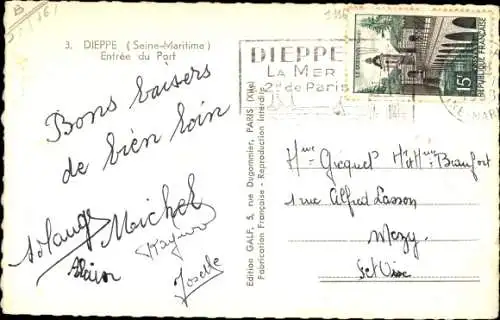 3. DIEPPE (Seine-Maritime)
Entrée du Port
Bons baisers
de bien loin
Solange Michel
Alain
Josette
Edition GALF, 5, rue Dugommier, PARIS (XIIe)
Fabrication Française - Reproduction Interdite
DIEPPE
LA MER
2h de Paris
15F
REPUBLIQUE FRANÇAISE
LE QUESNOY
Mme Gréquel Mr et Mme Beaufort
1 rue Alfred Lasson
Mezy
Set Oise